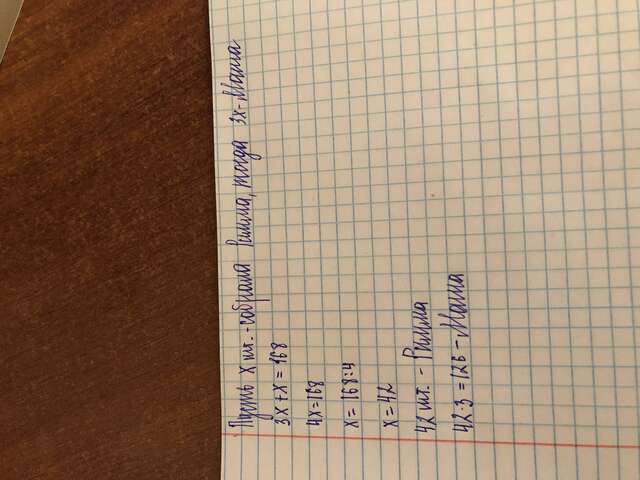 Пусть x шт. - собрала Римма, тогда 3x - Маша
3x + x = 168
4x = 168
x = 168:4
x = 42
42 шт. - Римма
42 · 3 = 126 - Маша